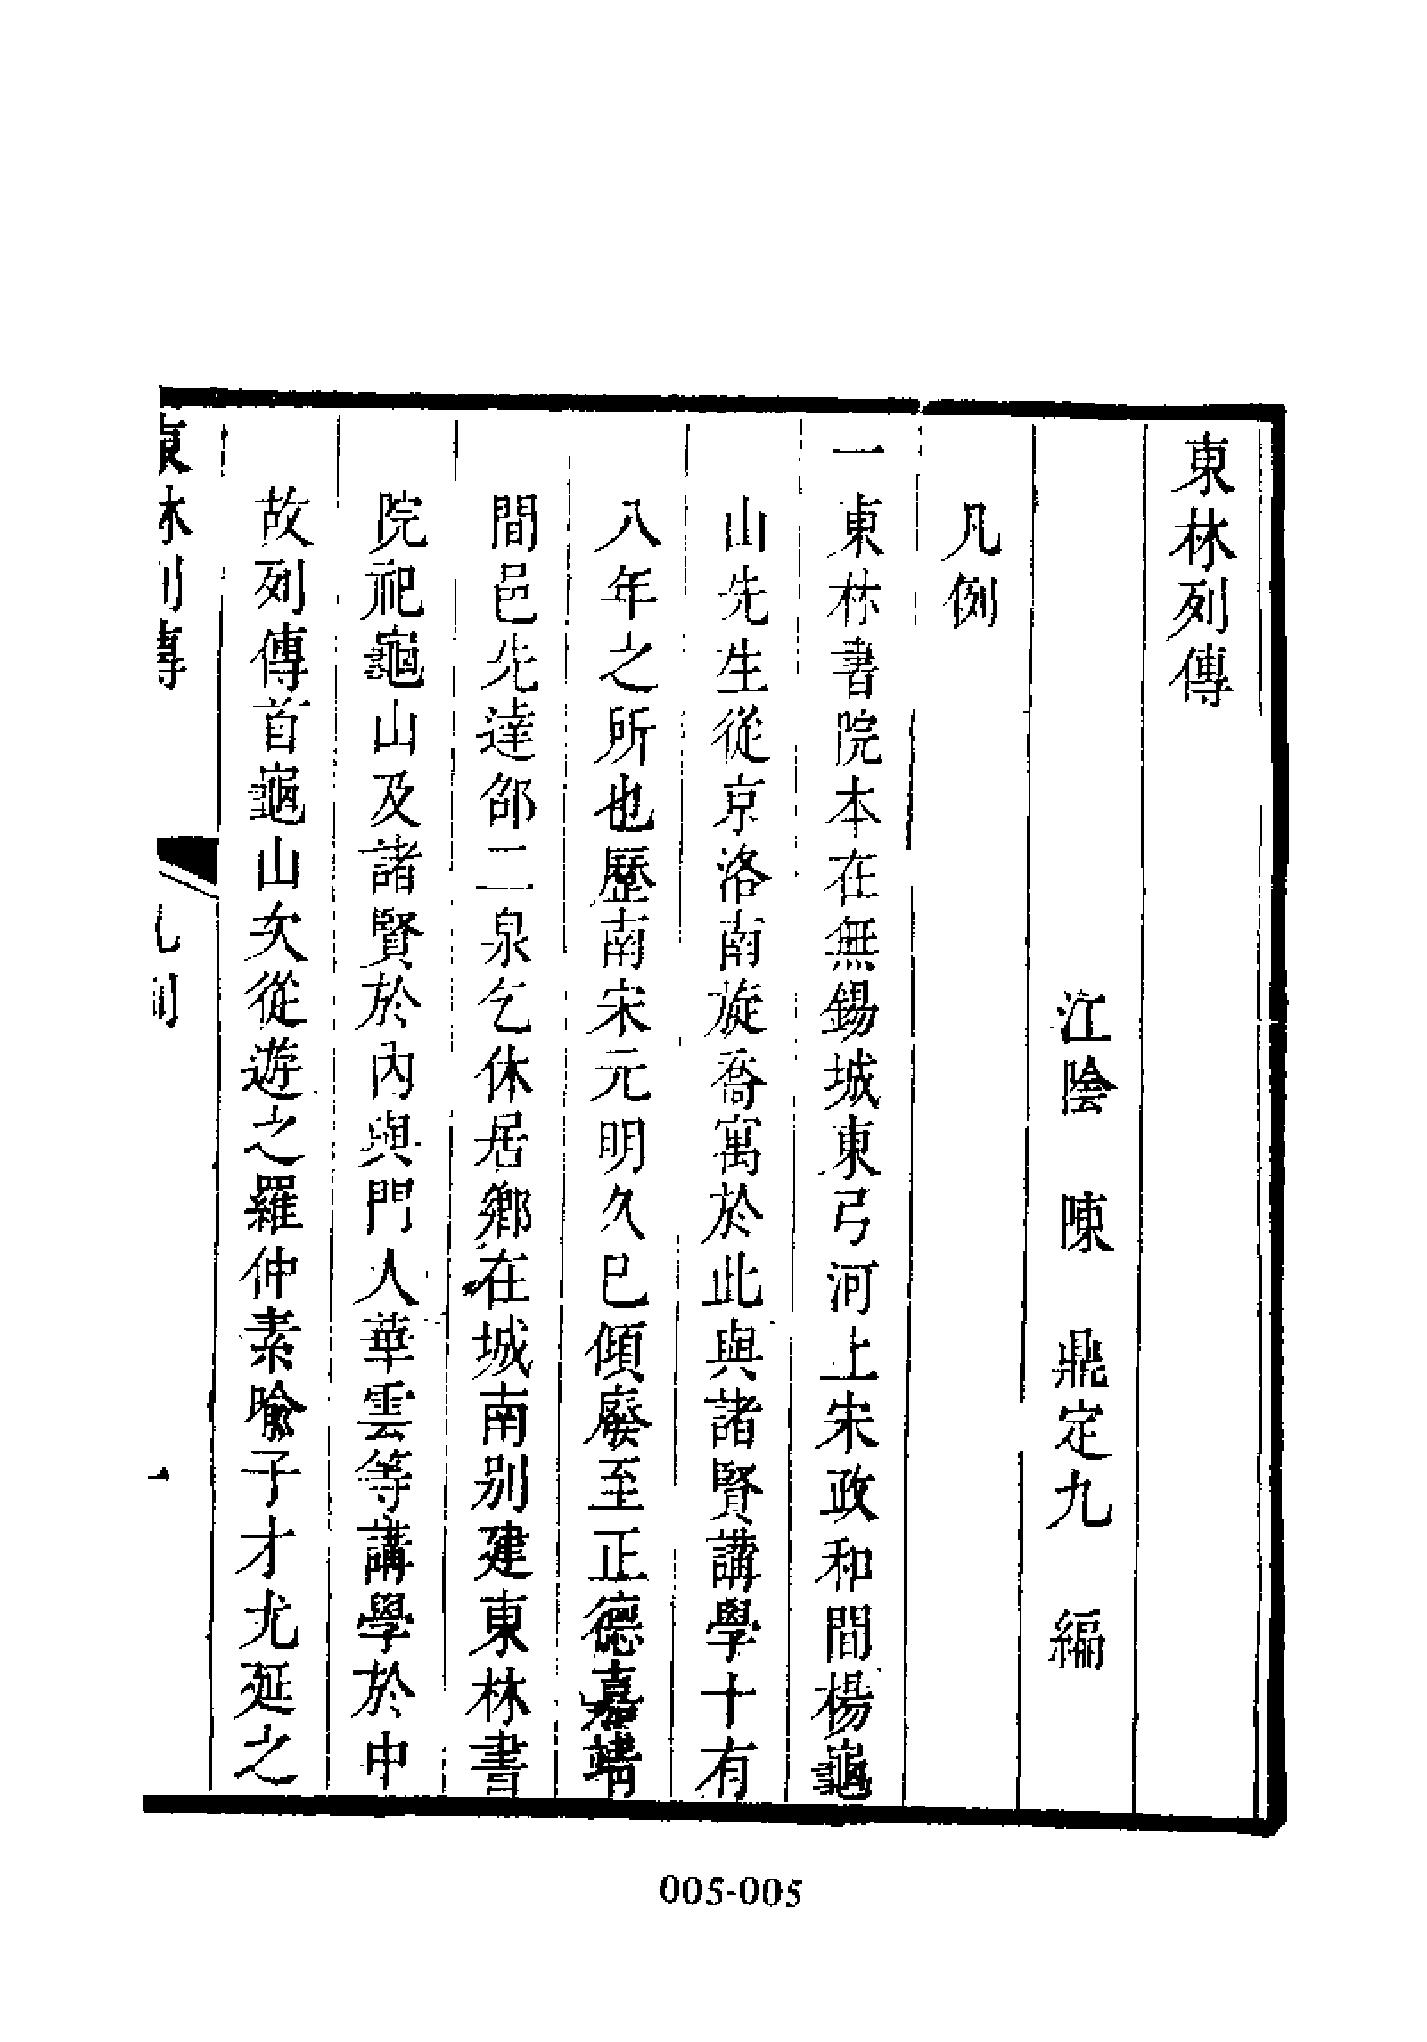 東林列傳
江陰 陳 鼎定九 編
凡例
一東林書院本在無錫城東弓河上宋政和間楊龜
山先生從京洛南旋喬寓於此與諸賢講學十有
八年之所也歷南宋元明久已傾廢至正德嘉靖
間邑先達邵二泉乞休居鄉在城南别建東林書
院祀龜山及諸賢於內與門人華雲等講學於中
故列傳首龜山次從遊之羅仲素喻子才尤延之
東林列傳 凡例 一
005-005